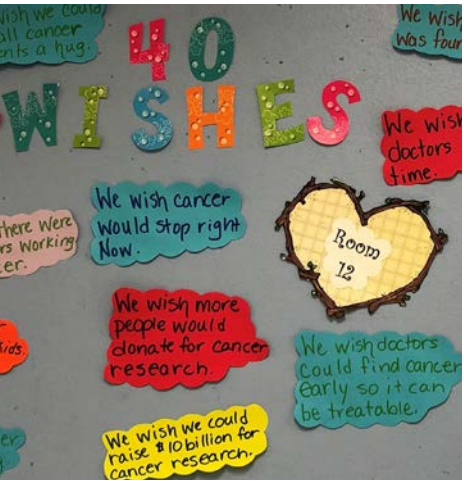 wish we could
all cancer
ents a hug.
40
We wish
was four
WISHES
We wish
doctors
time.
We wish cancer
would stop right
Now.
there were
rs working
er.
Room
12
We wish more
people would
donate for cancer
research.
kids.
We wish doctors
could find cancer
early so it can
be treatable.
We wish we could
raise $10 billion for
cancer research.
er